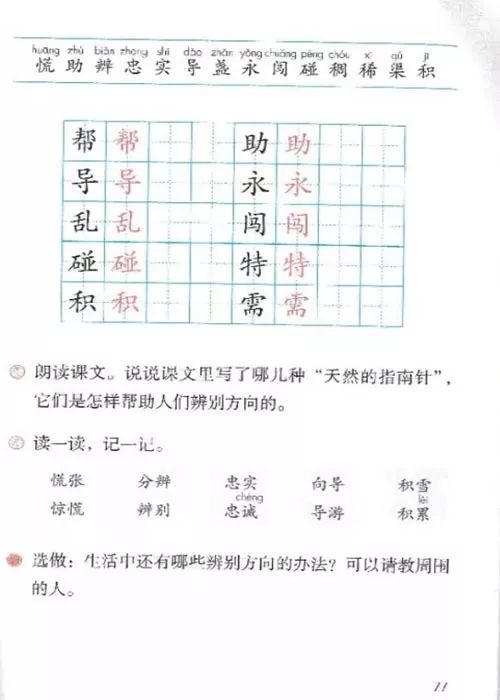 huāng zhù biàn zhōng shí dǎo zhǎn yǒng chuǎng pèng chóu xī qú jī
慌 助 辨 忠 实 导 盏 永 闯 碰 稠 稀 渠 积
帮 帮 助 助
导 导 永 永
乱 乱 闯 闯
碰 碰 特 特
积 积 需 需
朗读课文。说说课文里写了哪几种“天然的指南针”，
它们是怎样帮助人们辨别方向的。
读一读，记一记。
慌张 分辨 忠实 向导 积雪
chéng lěi
惊慌 辨别 忠诚 导游 积累
选做：生活中还有哪些辨别方向的办法？可以请教周围
的人。
77